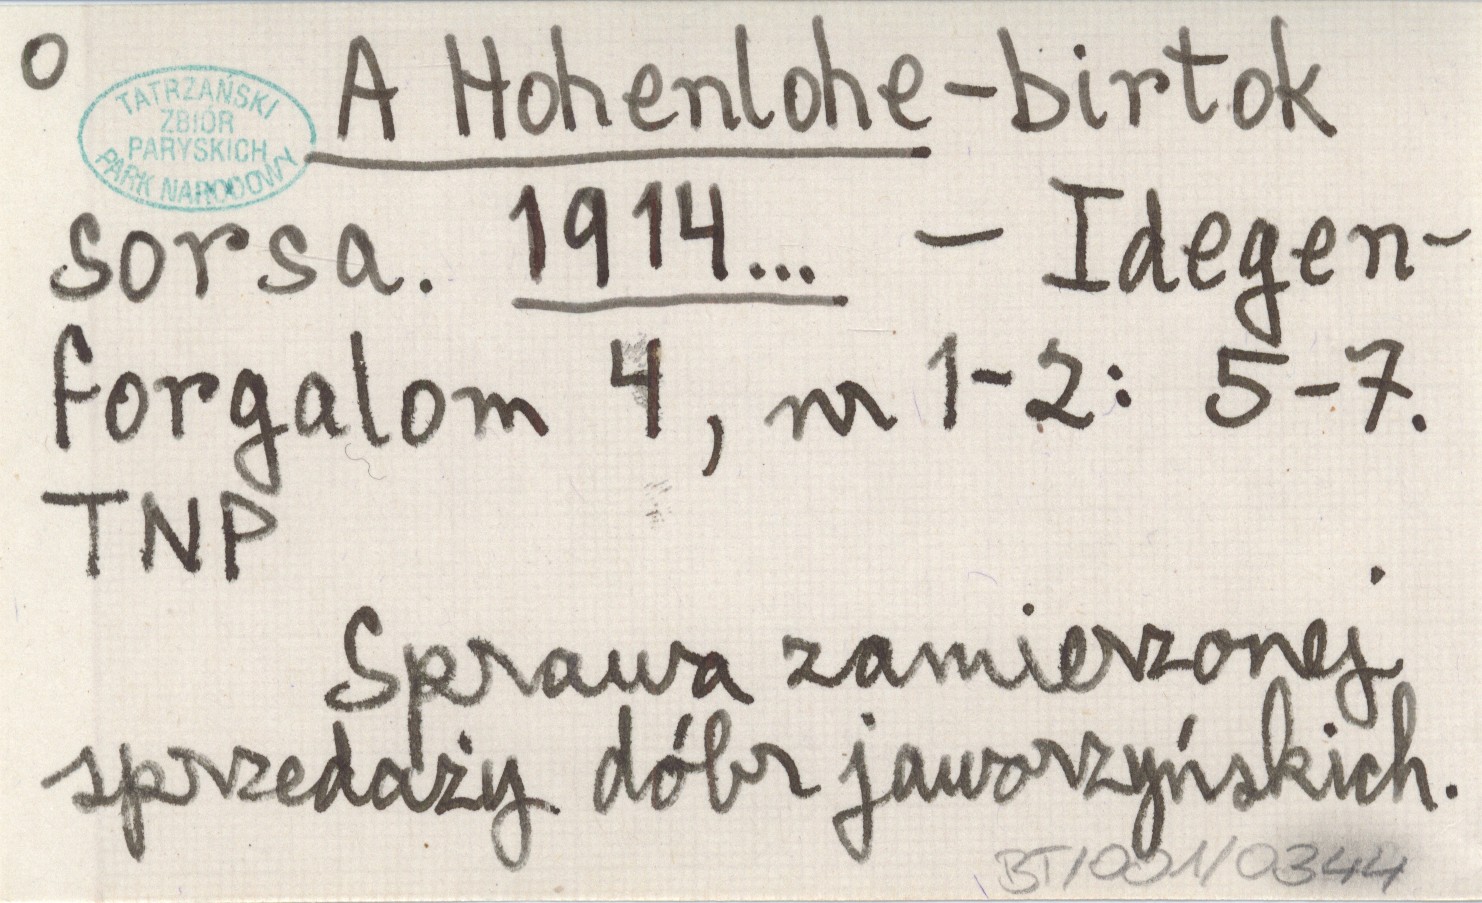 O
A Hohenlohe-birtok
TATRZAŃSKI
ZBIÓR
PARYSKICH
PARK NARODOWY
sorsa. 1914... — Idegen-
forgalom 4, nr 1-2: 5-7.
TNP
Sprawa zamierzonej
sprzedaży dóbr jaworzyńskich.
BT/001/0344